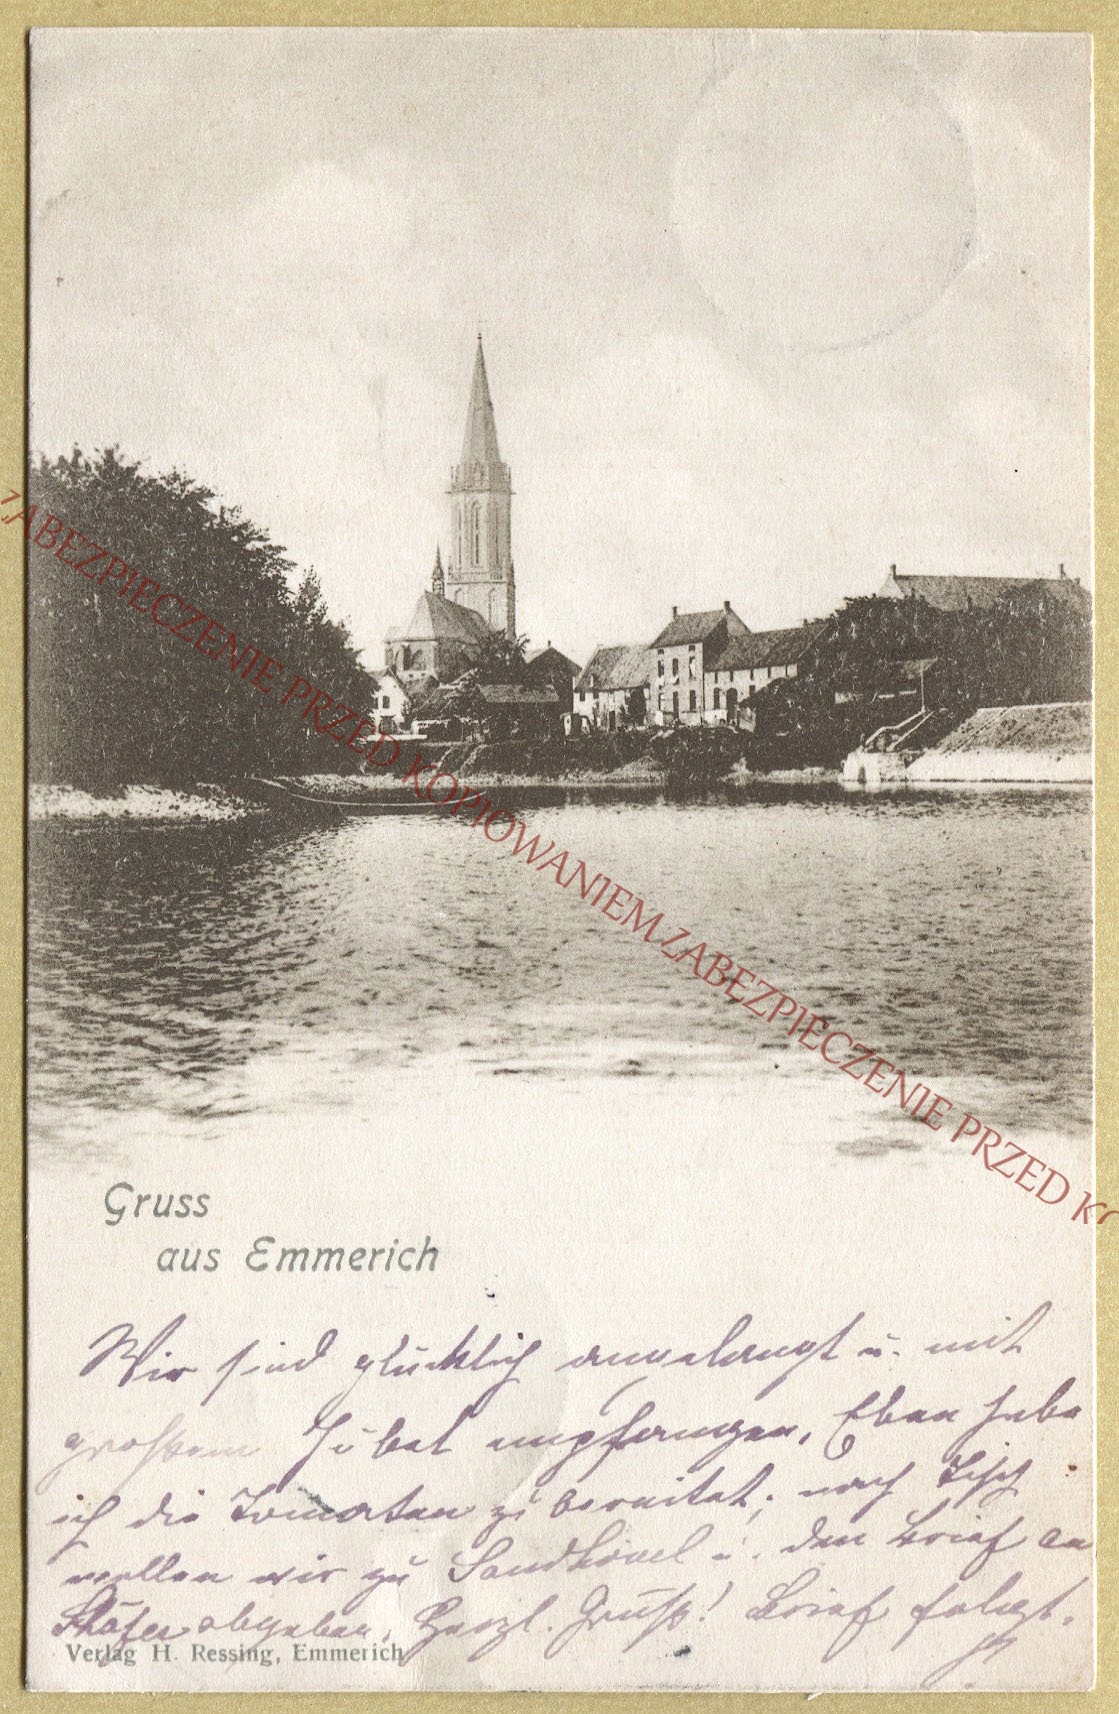 ZABEZPIECZENIE PRZED KOPIOWANIEM ZABEZPIECZENIE PRZED KO
Gruss
aus Emmerich
Wir sind glücklich angelangt u. mit
großem Jubel empfangen. Eben habe
ich die Tomaten zubereitet, nach Tisch
wollen wir zu u. den Brief an
abgeben. Herzl. Gruß! Brief folgt.
Verlag H. Ressing, Emmerich